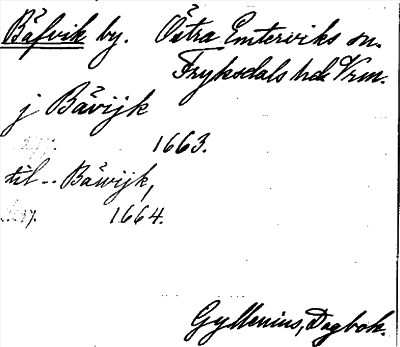 Bäfvik by. Östra Emterviks sn.
Fryksdals hd Vrm.
j Båvijk
1663.
til -- Båwijk,
1664.
Gyllenius, Dagbok.